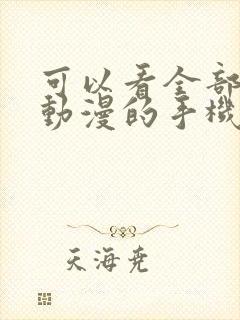 可以看全部
動漫的手機
天海堯